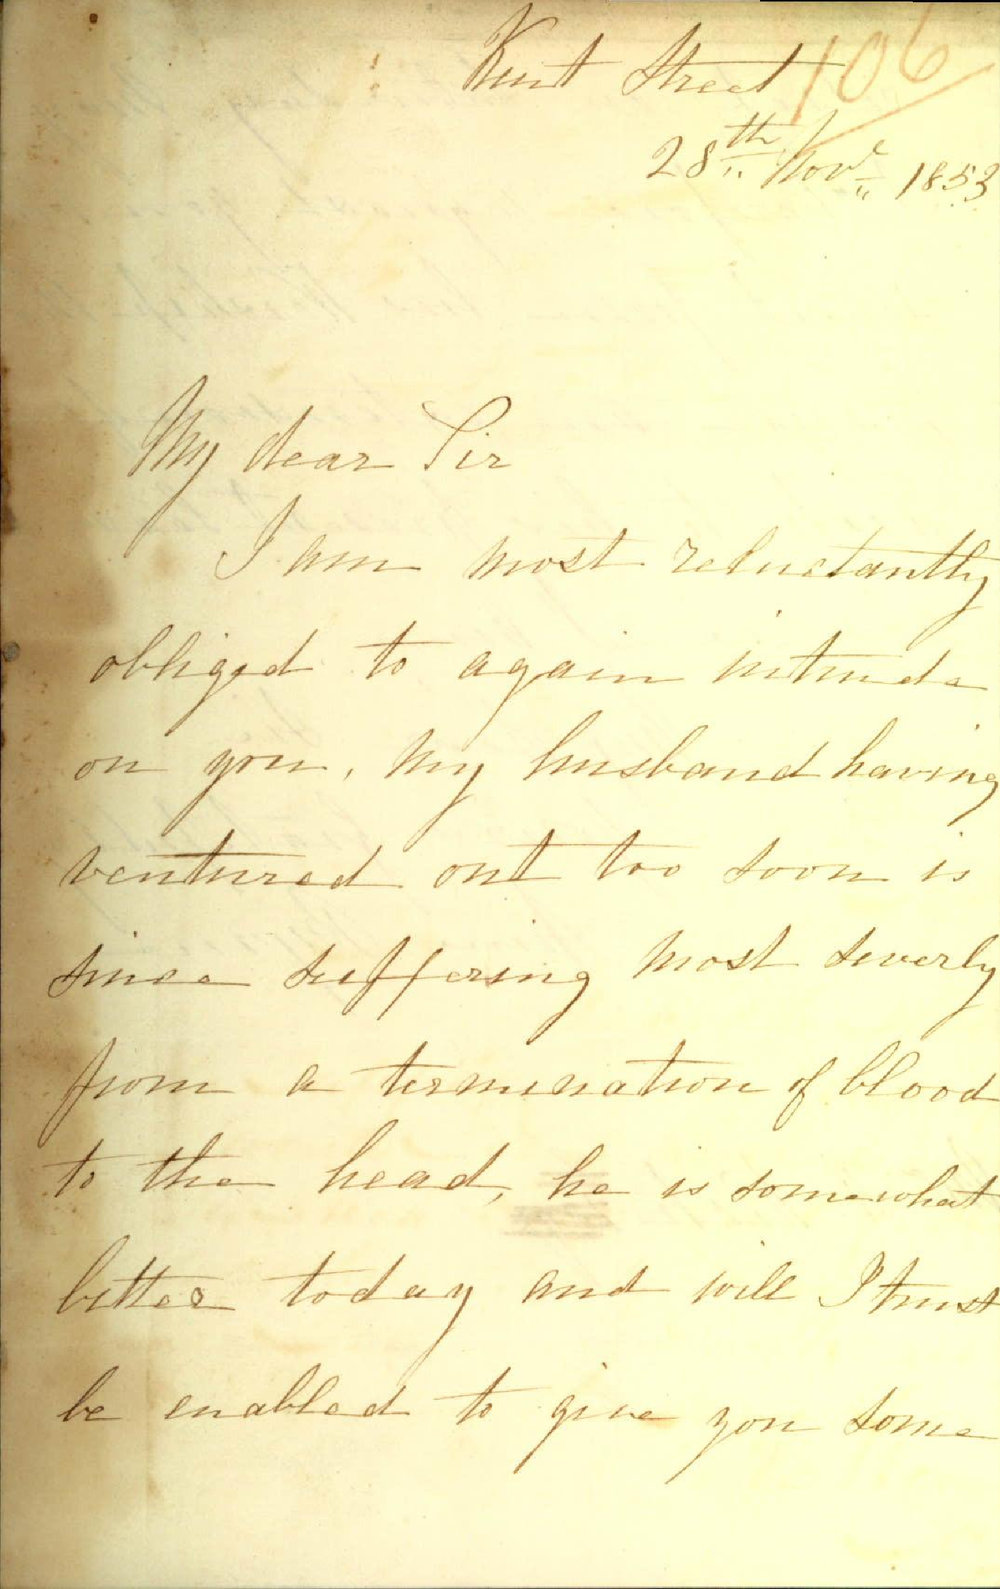 Kent Street 106
28th Novr 1853
My dear Sir
I am most reluctantly
obliged to again intrude
on you, My husband having
ventured out too soon is
since suffering most severly
from a termination of blood
to the head, he is somewhat
better today and will I trust
be enabled to give you some